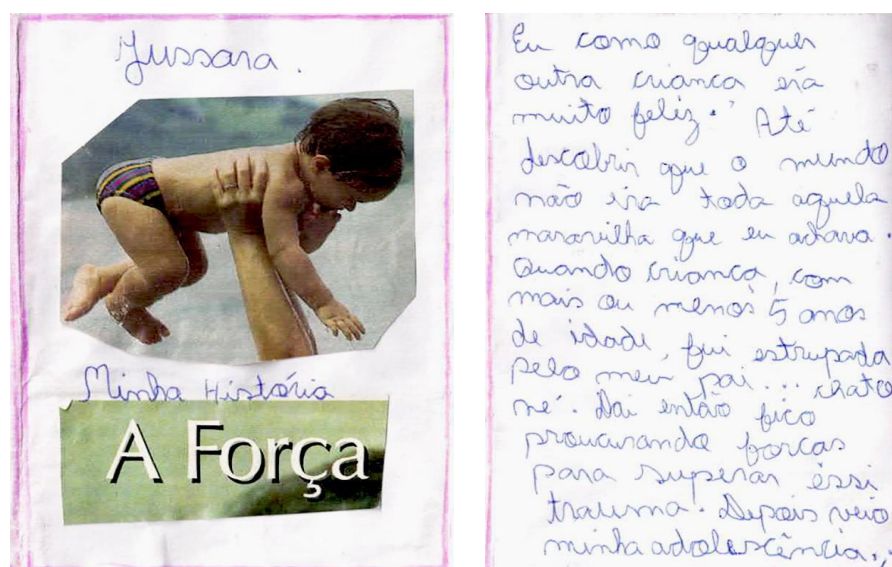 Jussara.
Minha História
A Força
Eu como qualquer
outra criança era
muito feliz. Até
descobrir que o mundo
não era toda aquela
maravilha que eu achava.
Quando criança, com
mais ou menos 5 anos
de idade, fui estrupada
pelo meu pai... chato
né. Dai então fico
proucurando forcas
para superar éssi
trauma. Depois veio
minha adolescência..